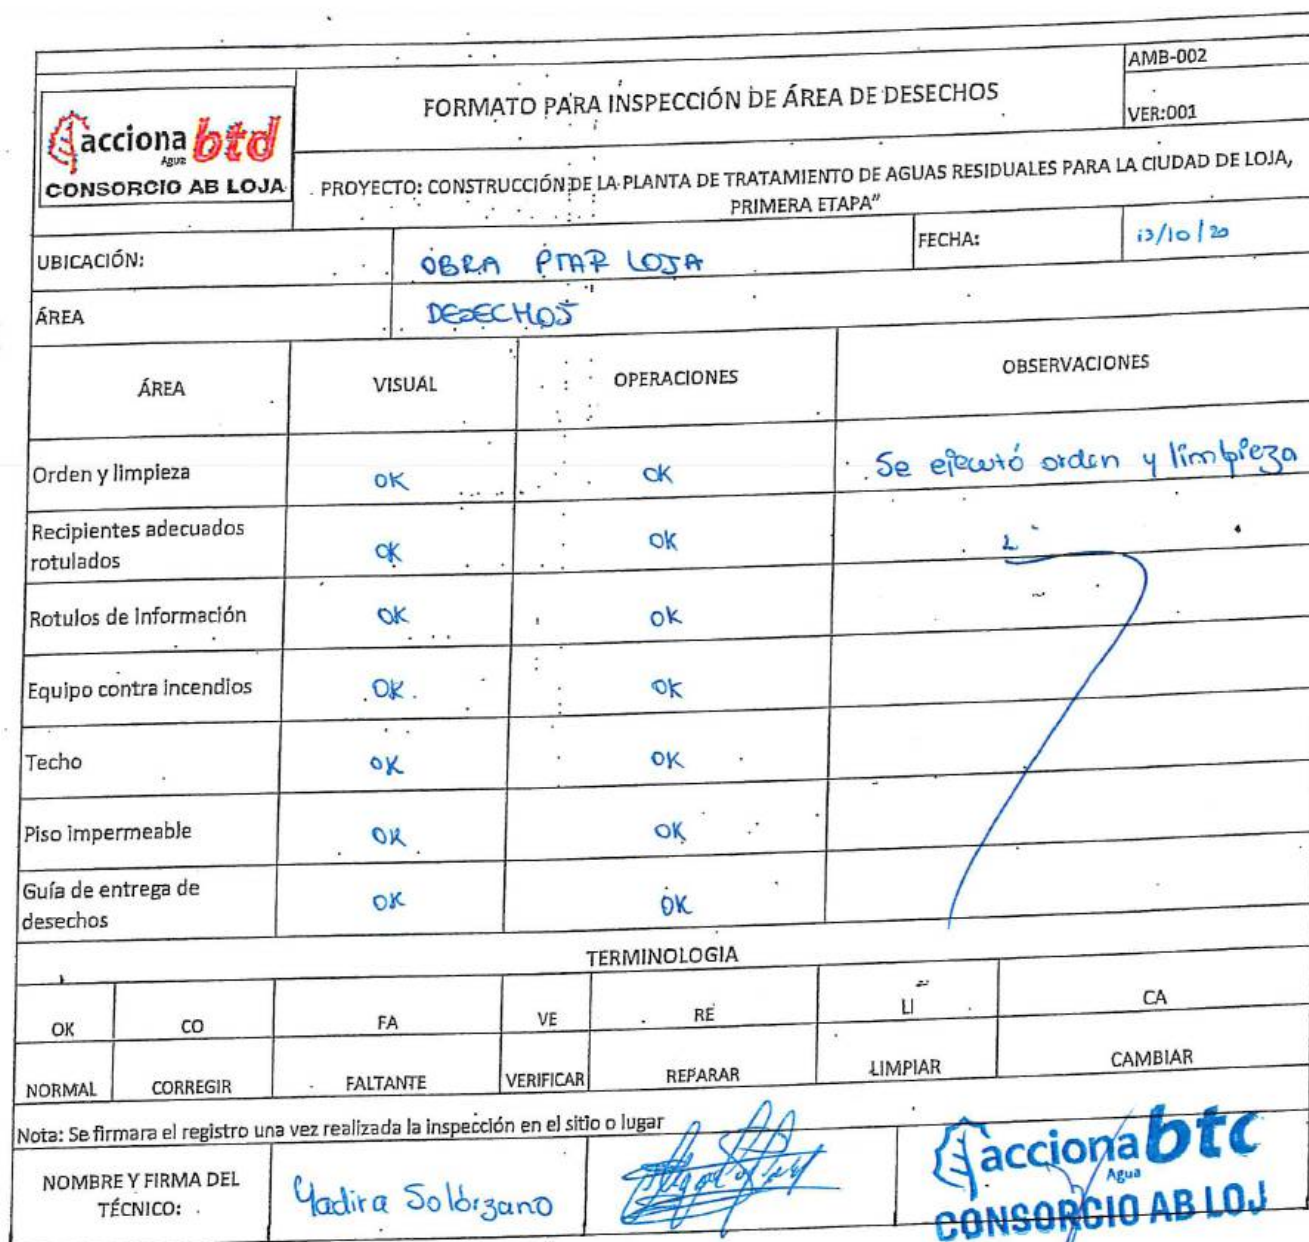 AMB-002
acciona btd
Agua
CONSORCIO AB LOJA
FORMATO PARA INSPECCIÓN DE ÁREA DE DESECHOS
VER:001
PROYECTO: CONSTRUCCIÓN DE LA PLANTA DE TRATAMIENTO DE AGUAS RESIDUALES PARA LA CIUDAD DE LOJA,
PRIMERA ETAPA”
UBICACIÓN: OBRA PTAR LOJA FECHA: 13/10/20
ÁREA DESECHOS
ÁREA VISUAL OPERACIONES OBSERVACIONES
Orden y limpieza OK OK Se ejecutó orden y limpieza
Recipientes adecuados
rotulados OK OK
Rotulos de información OK OK
Equipo contra incendios OK OK
Techo OK OK
Piso impermeable OK OK
Guía de entrega de
desechos OK OK
TERMINOLOGIA
OK CO FA VE RE LI CA
NORMAL CORREGIR FALTANTE VERIFICAR REPARAR LIMPIAR CAMBIAR
Nota: Se firmara el registro una vez realizada la inspección en el sitio o lugar
NOMBRE Y FIRMA DEL
TÉCNICO: Yadira Solórzano
acciona btc
Agua
CONSORCIO AB LOJ